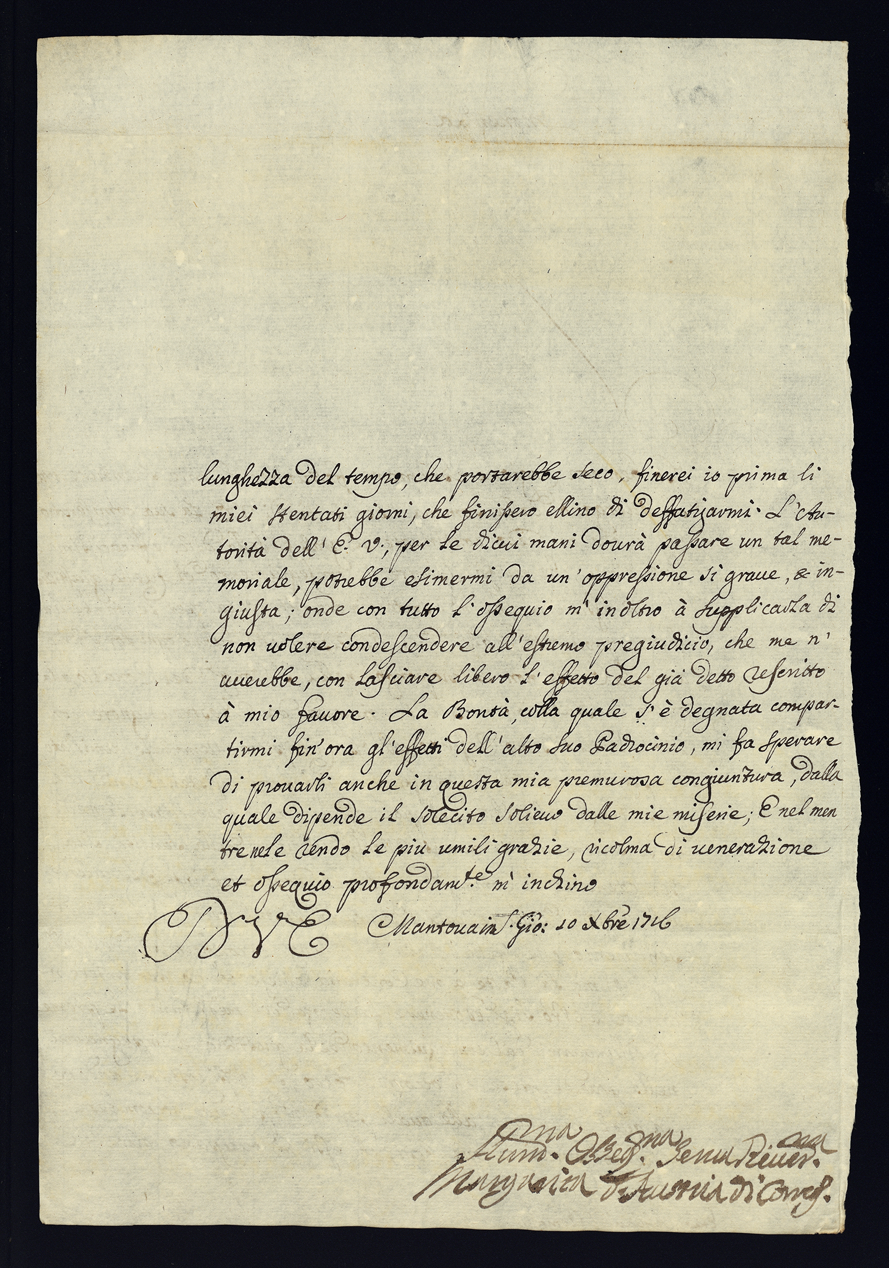 lunghezza del tempo, che portarebbe seco, finerei io prima li
miei stentati giorni, che finissero ellino di deffatigarmi. L'Au-
torità dell' E. V., per le di cui mani dourà passare un tal me-
moriale, potrebbe esimermi da un' oppressione sì graue, & in-
giusta; onde con tutto l'ossequio m' inoltro à supplicarla di
non uolere condescendere all'estremo pregiudicio, che me n'
auuerebbe, con lasciare libero l'effetto del già detto rescritto
à mio fauore. La Bontà, colla quale s'è degnata compar-
tirmi fin'ora gl'effetti dell'alto suo Padrocinio, mi fa sperare
di prouarli anche in questa mia premurosa congiuntura, dalla
quale dipende il solecito solieuo dalle mie miserie; E nel men
tre nele rendo le più umili grazie, ricolma di uenerazione
et ossequio profondam.te m' inchino
D V E Mantoua in S. Gio: 10 Xbre 1716
Hum.ma Obeg.ma Serua Riuer.ma
Margarita d'Austria di Correg.